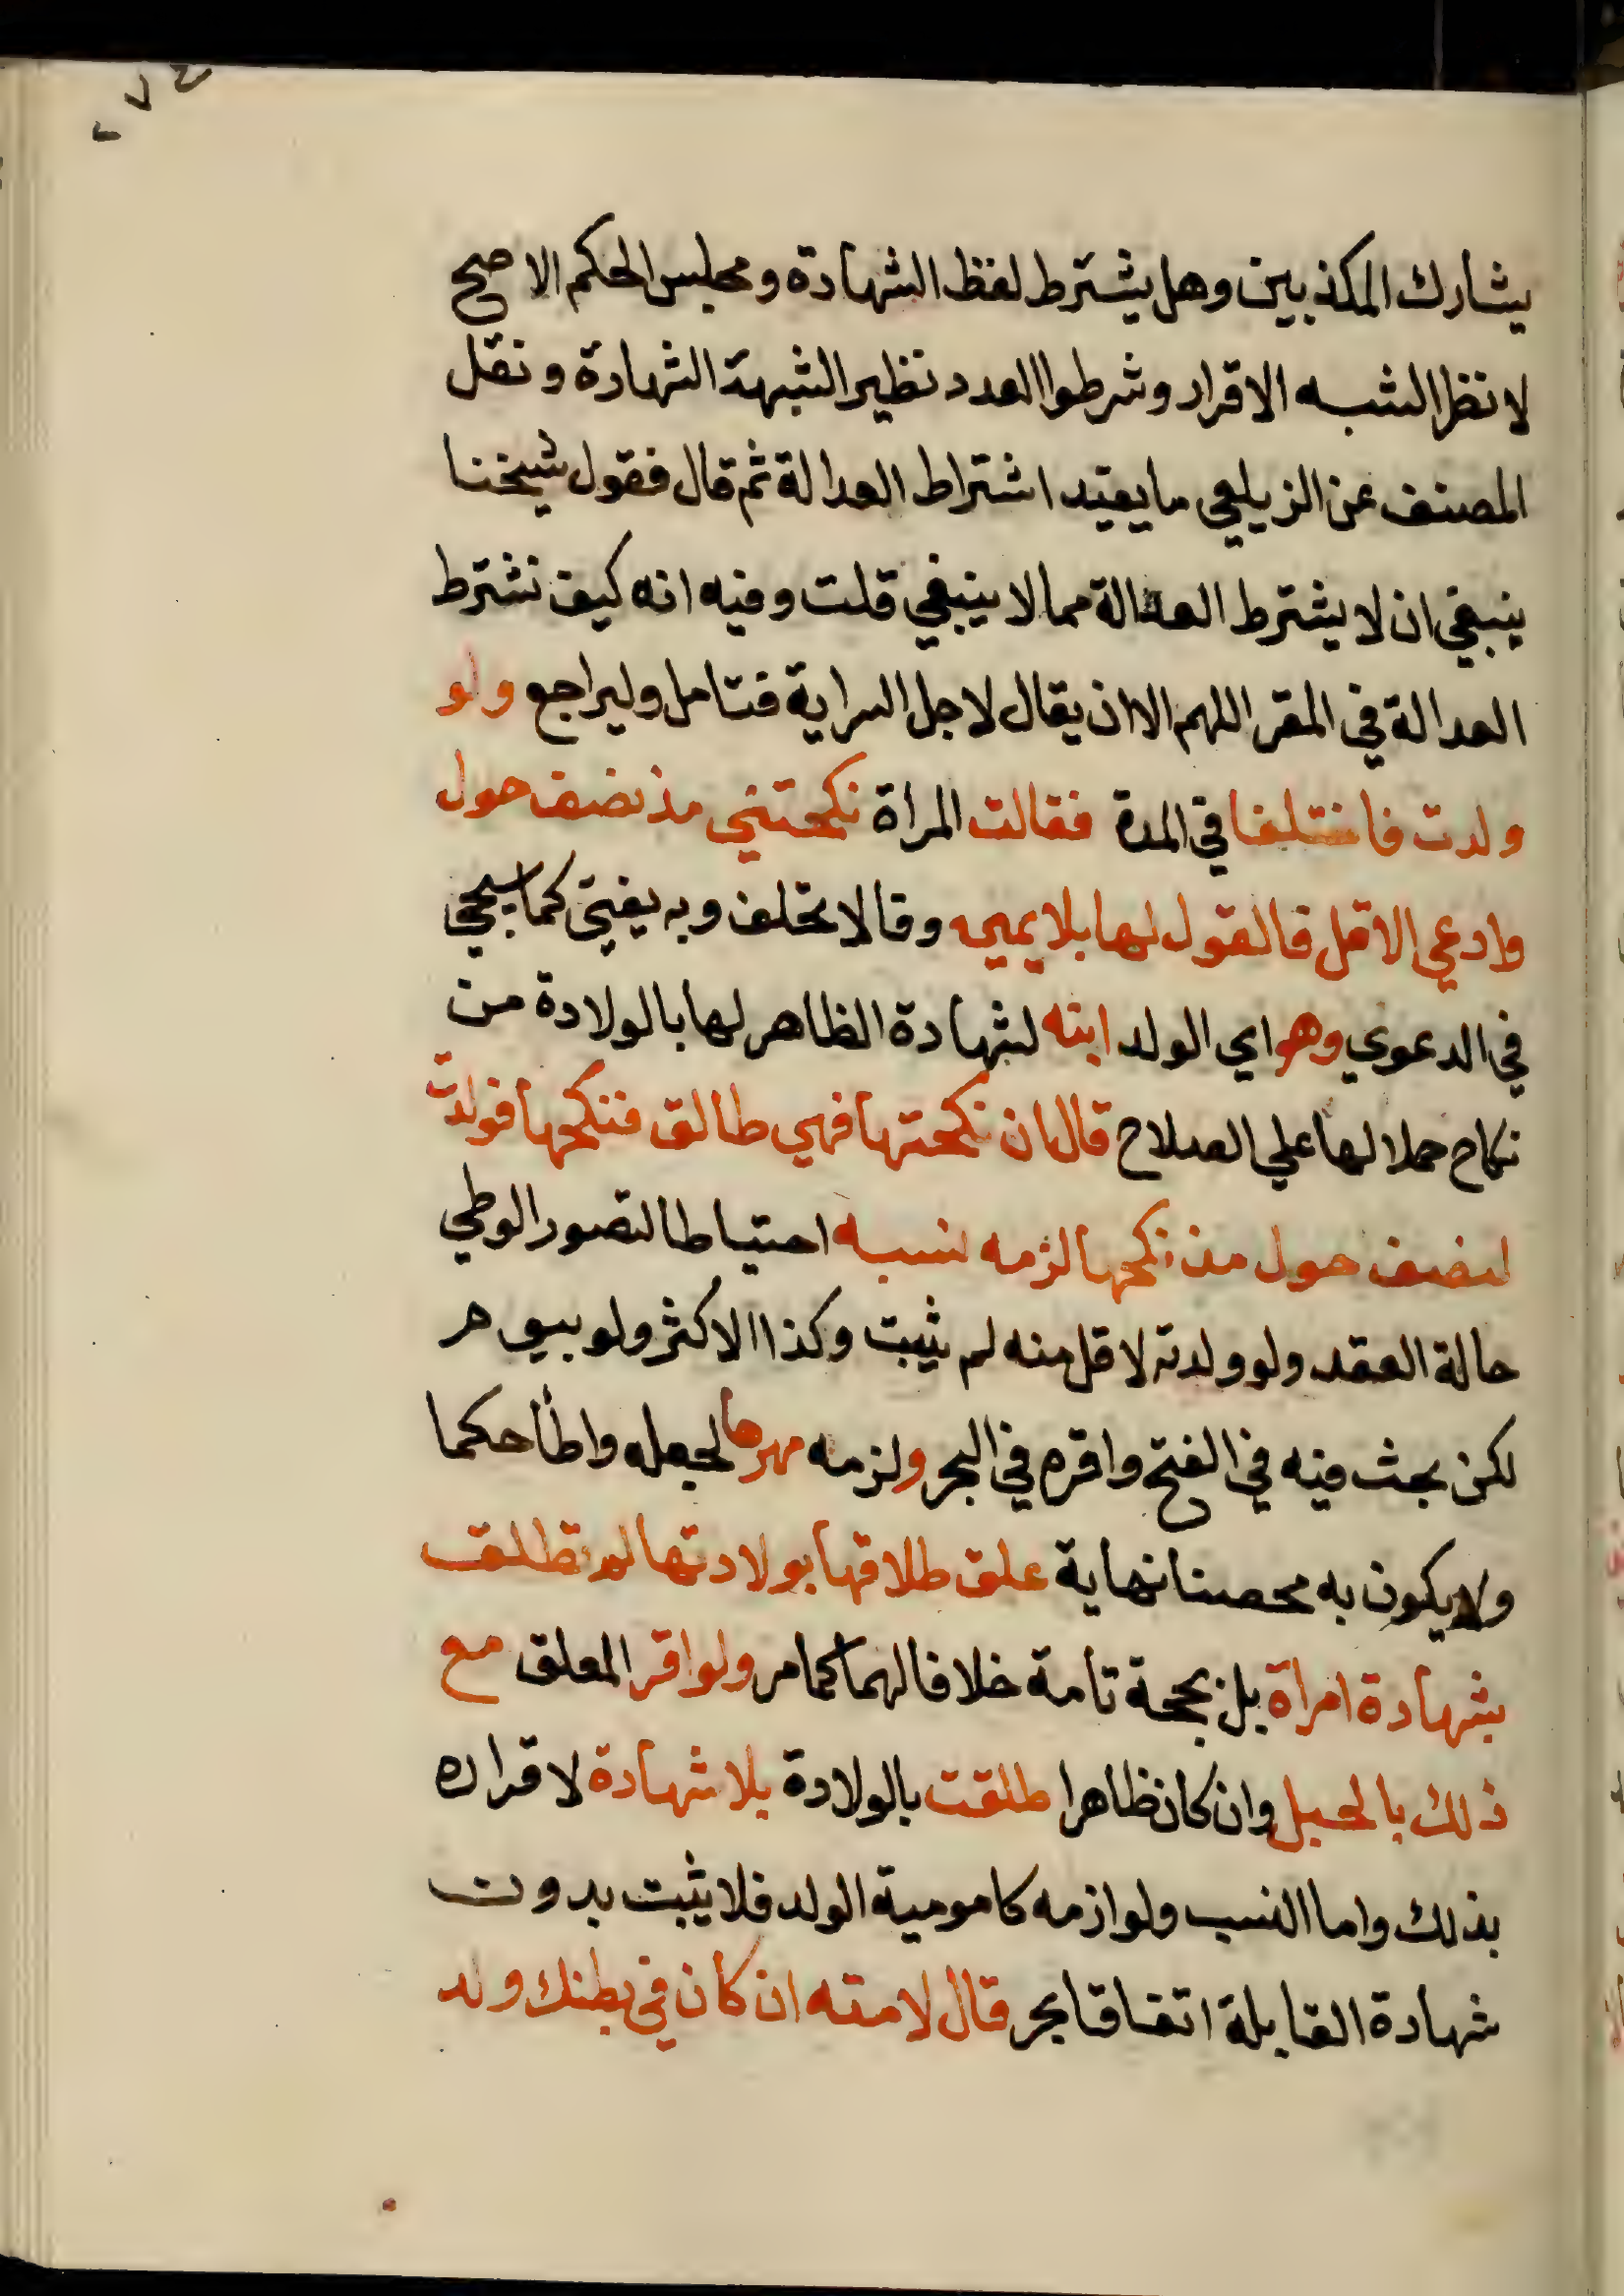 ٢٧٤
يشارك المكذبين وهل يشترط لفظ الشهادة ومجلس الحكم الاصح
لا نظرا لشبه الاقرار وشرطوا العدد نظير الشبهة الشهادة ونقل
المصنف عن الزيلعي ما يفيد اشتراط العدالة ثم قال فقول شيخنا
ينبغي ان لا يشترط العدالة مما لا ينبغي قلت وفيه انه كيف تشترط
العدالة في المقر اللهم الا ان يقال لاجل السراية فتامل وليراجع ولو
ولدت فاختلفا في المدة فقالت المراة نكحتني مذ نصف حول
وادعي الاقل فالقول لها بلا يمين وقالا تحلف وبه يفتي كما سيجي
في الدعوي وهو اي الولد ابنه لشهادة الظاهر لها بالولادة من
نكاح حملا لها علي الصلاح قال ان نكحتها فهي طالق فنكحها فولدت
لنصف حول مذ نكحها لزمه نسبه احتياطا لتصور الوطي
حالة العقد ولو ولدته لاقل منه لم يثبت وكذا الاكثر ولو بيوم
لكن بحث فيه في الفتح واقره في البحر ولزمه مهرها لجعله واطأ حكما
ولا يكون به محصنا نهاية علق طلاقها بولادتها لم تطلق
بشهادة امراة بل بحجة تامة خلافا لهما كما مر ولو اقر المعلق مع
ذلك بالحبل وان كان ظاهرا طلقت بالولادة بلا شهادة لاقراره
بذلك واما النسب ولوازمه كامومية الولد فلا يثبت بدون
شهادة القابلة اتفاقا بحر قال لامته ان كان في بطنك ولد